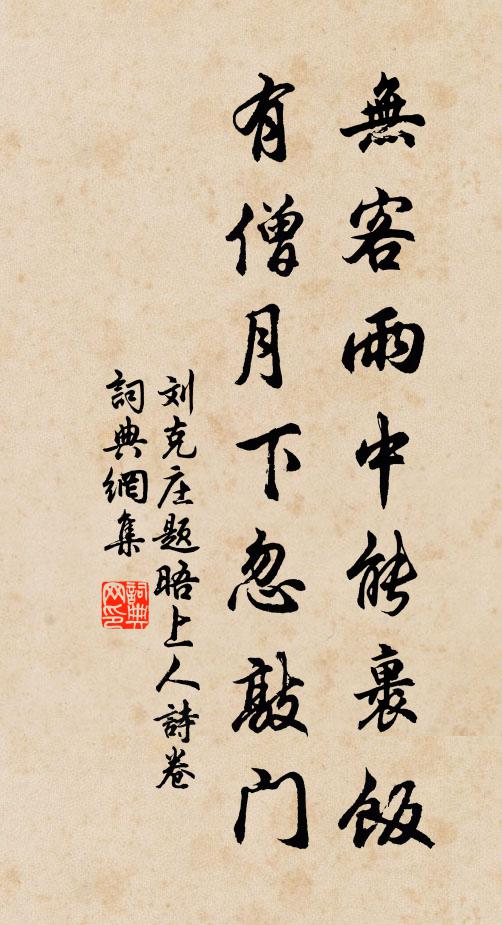 無客雨中能裹飯
有僧月下忽敲門
刘克庄題晤上人詩卷
詞典網集
詞典
网印